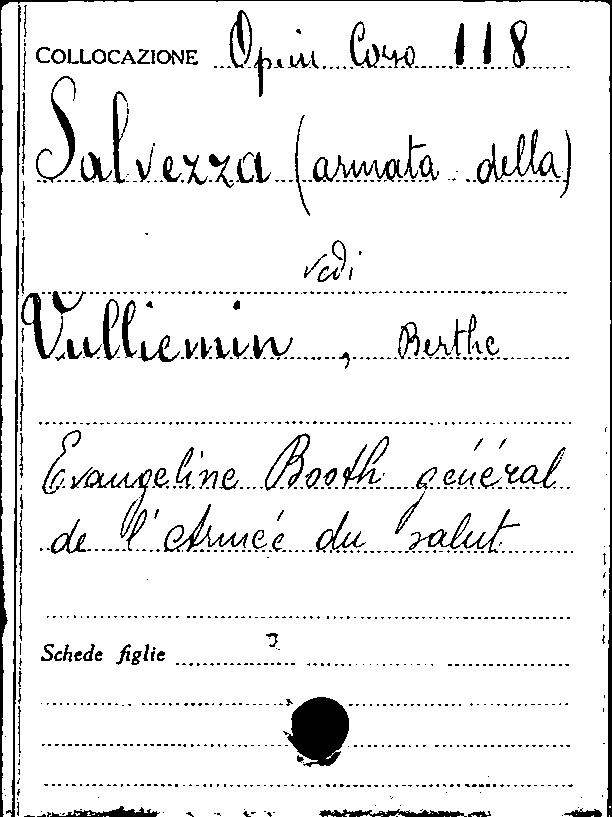 COLLOCAZIONE Opin Coro 118
Salvezza (armata della)
vedi
Vulliemin, Berthe
Evangeline Booth général
de l'Armée du salut
Schede figlie